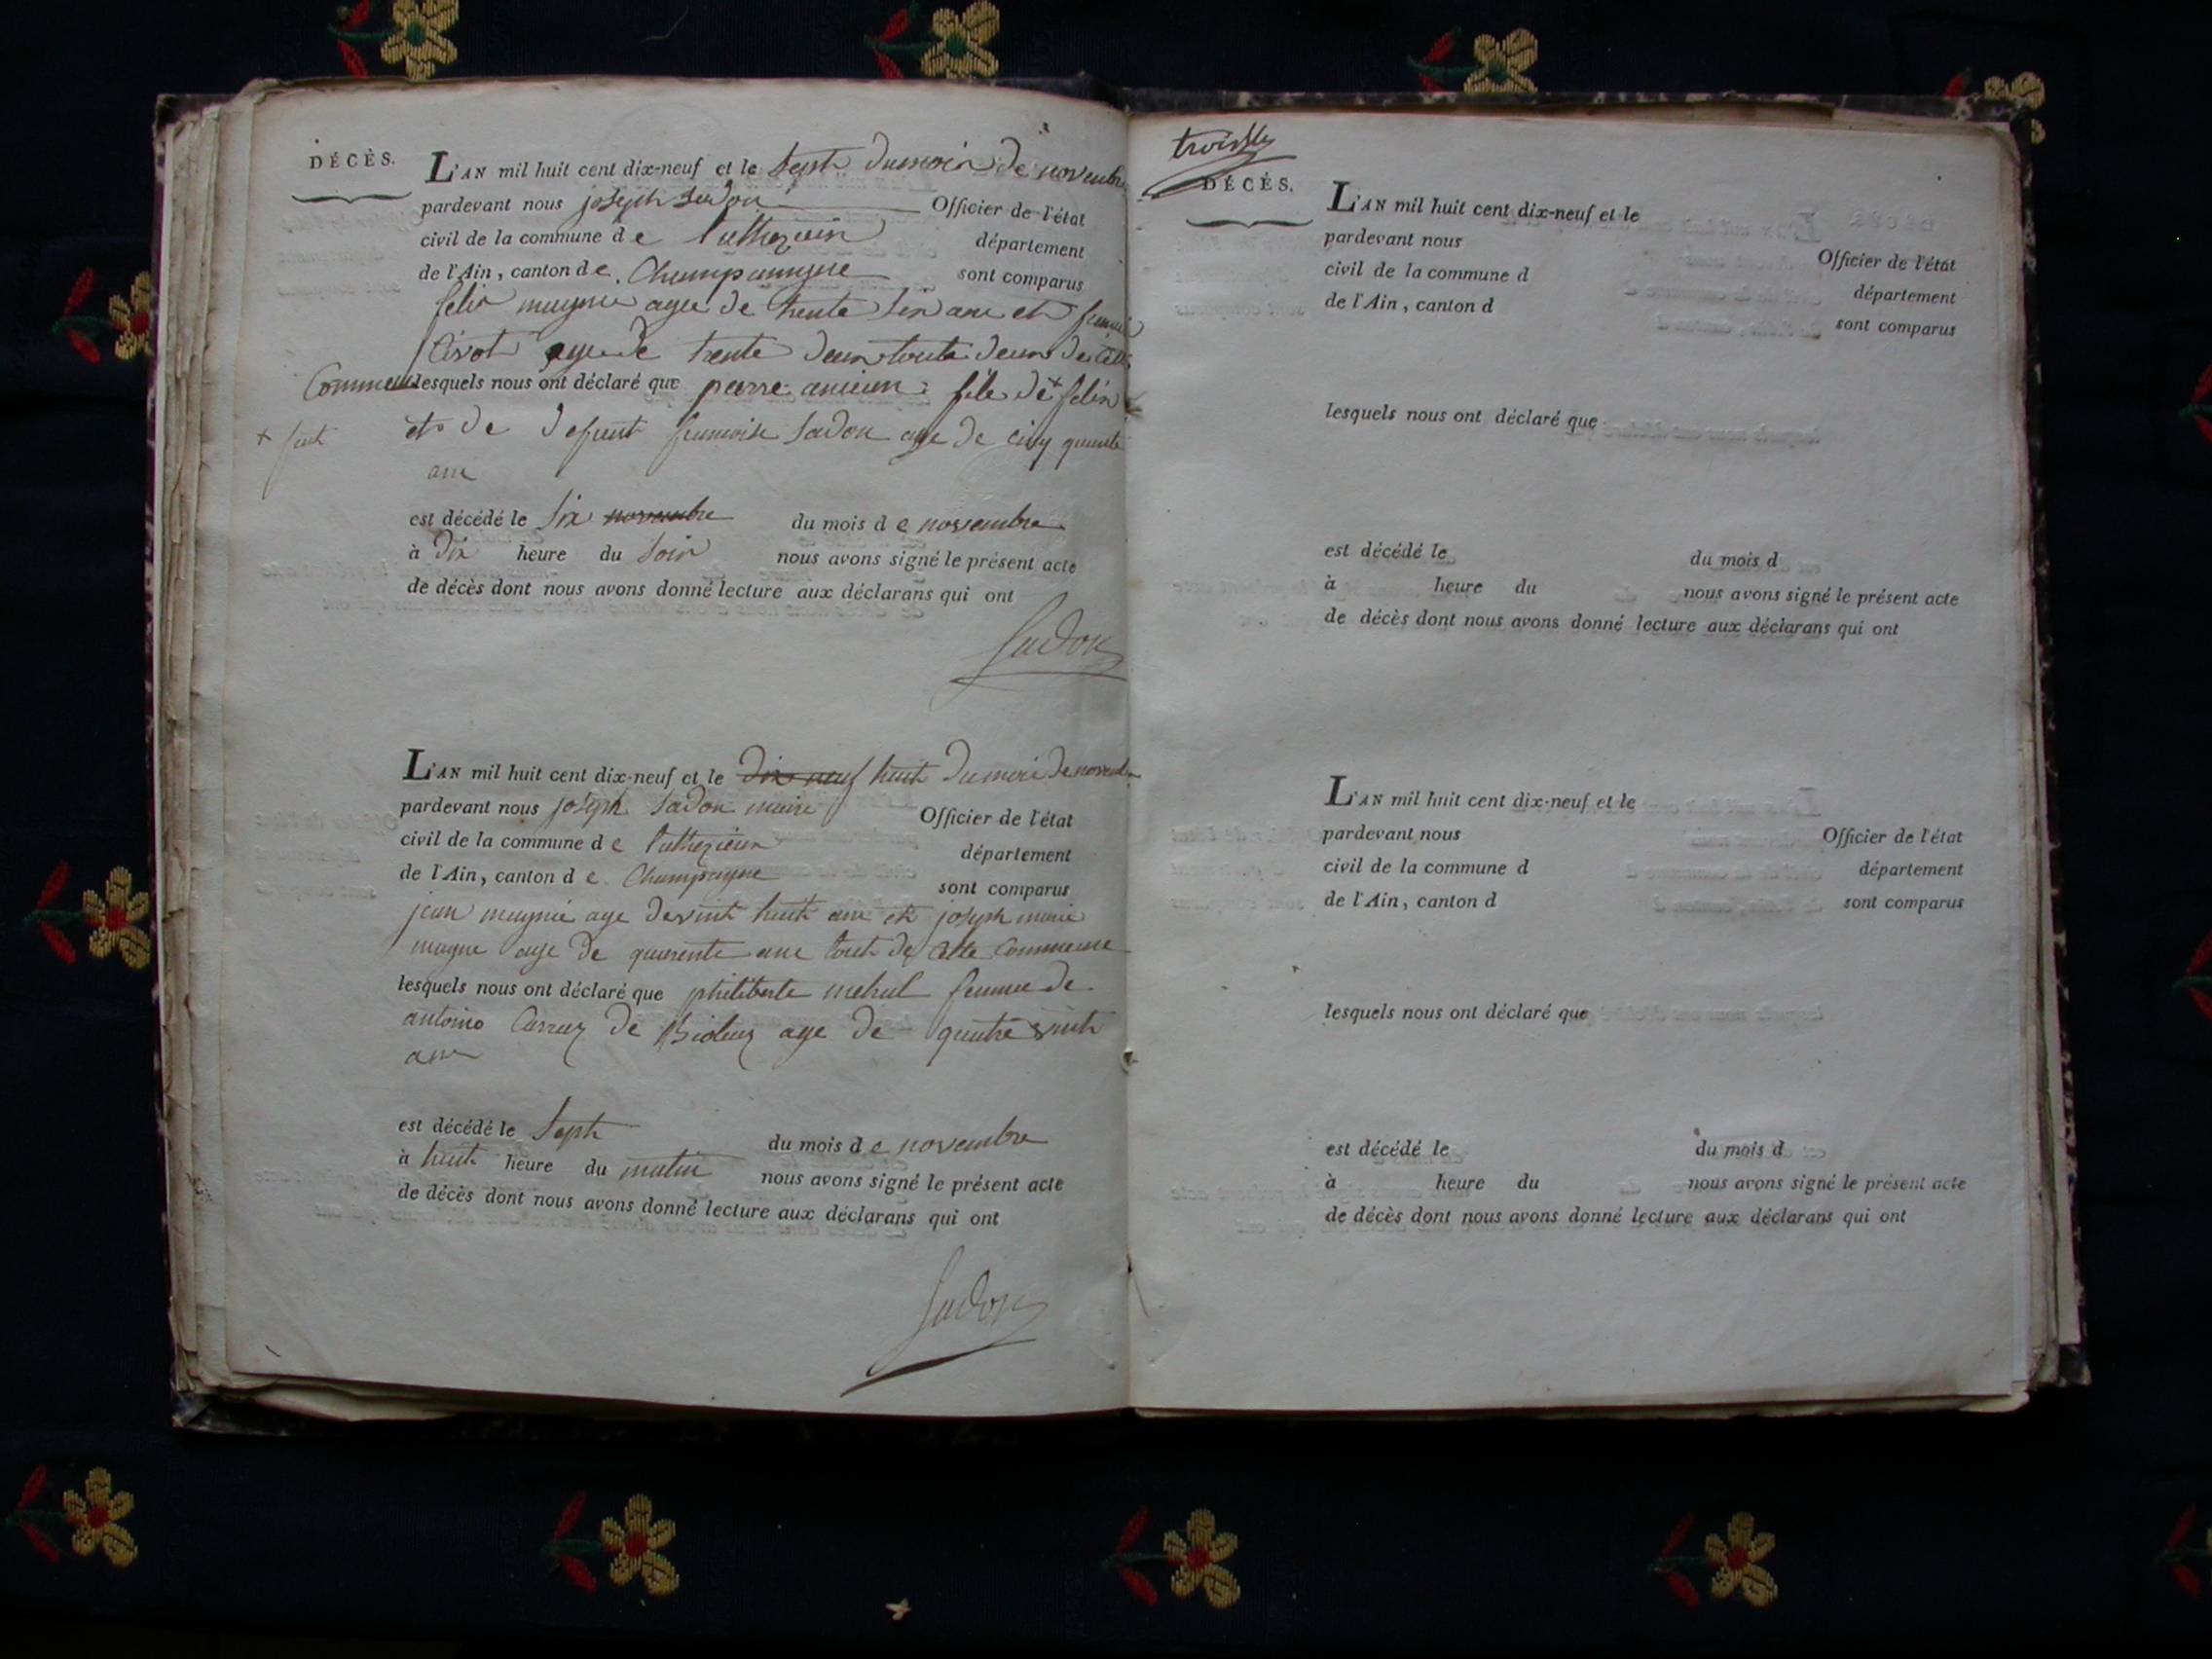 DÉCÈS.
L'AN mil huit cent dix-neuf et le sept du mois de novembre
pardevant nous joseph sadon Officier de l'état
civil de la commune de luthezieu département
de l'Ain, canton de Champanigne sont comparus
felix mugnie age de trente six ans et
age de trente deux toute deux de cette
Commeune lesquels nous ont déclaré que pierre ancien file de + felix
+ feut et de defunt francoise sadon age de cinq quante
ans
est décédé le six novembre du mois de novembre
à dix heure du soir nous avons signé le présent acte
de décès dont nous avons donné lecture aux déclarans qui ont
sadon
L'AN mil huit cent dix-neuf et le dix neuf huit du mois de novembre
pardevant nous joseph sadon maire Officier de l'état
civil de la commune de luthezieu département
de l'Ain, canton de Champagne sont comparus
jean mugnie age de vint huit ans et joseph marie
mugne age de quarente ans tout de cette Commeune
lesquels nous ont déclaré que philiberte mehul femme de
antoine Carrez de age de quatre vint
ans
est décédé le sept du mois de novembre
à huit heure du matin nous avons signé le présent acte
de décès dont nous avons donné lecture aux déclarans qui ont
sadon
DÉCÈS.
L'AN mil huit cent dix-neuf et le
pardevant nous Officier de l'état
civil de la commune d département
de l'Ain, canton d sont comparus
lesquels nous ont déclaré que
est décédé le du mois d
à heure du nous avons signé le présent acte
de décès dont nous avons donné lecture aux déclarans qui ont
L'AN mil huit cent dix-neuf et le
pardevant nous Officier de l'état
civil de la commune d département
de l'Ain, canton d sont comparus
lesquels nous ont déclaré que
est décédé le du mois d
à heure du nous avons signé le présent acte
de décès dont nous avons donné lecture aux déclarans qui ont